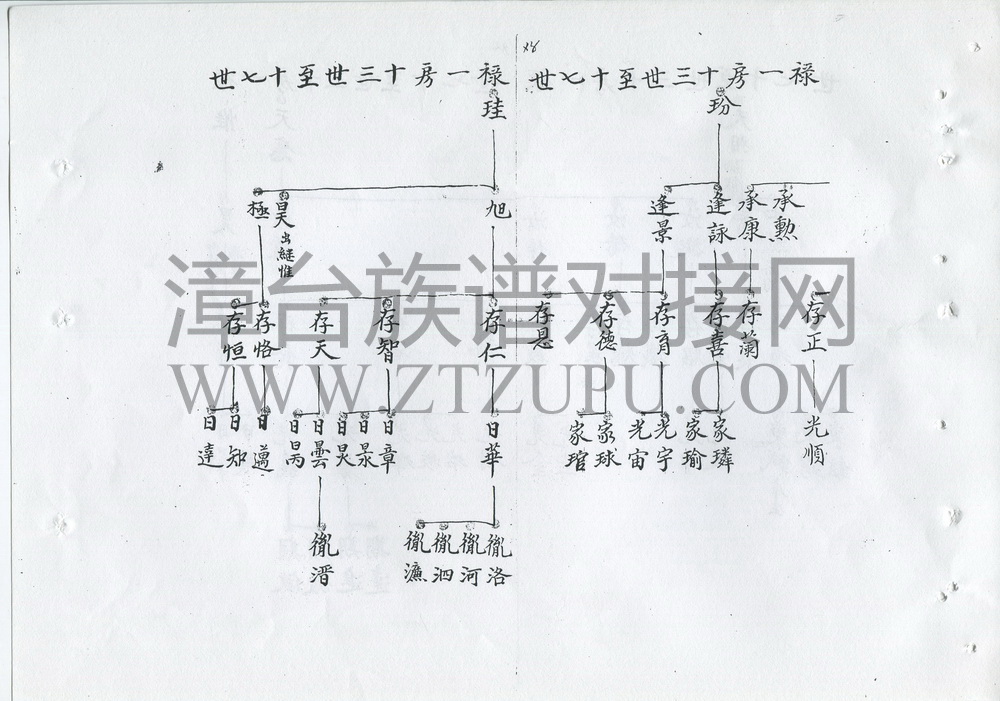 禄一房十三世至十七世
玢
承勲
承康
逢詠
逢景
存正
存蘭
存喜
存育
存德
存恳
光順
家璘
家瑜
光宇
光宙
家球
家琯
禄一房十三世至十七世
珪
旭
昊 出継惟
極
存仁
存智
存天
存恪
存恒
日華
日章
日昃
日曇
日昺
日邁
日知
日達
胤洛
胤河
胤泗
胤濂
胤潽
漳台族谱对接网
WWW.ZTZUPU.COM